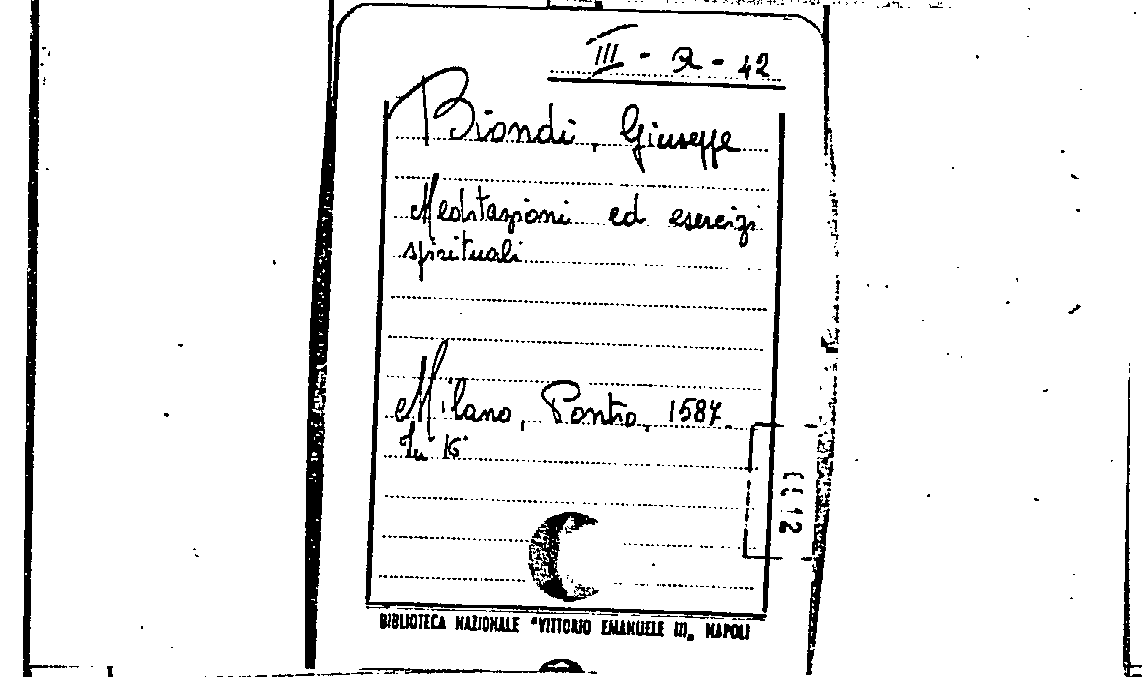 III - R - 42
Biondi, Giuseppe
Meditazioni ed esercizi
spirituali
Milano, Pontio, 1587.
In 16°
BIBLIOTECA NAZIONALE "VITTORIO EMANUELE III" NAPOLI